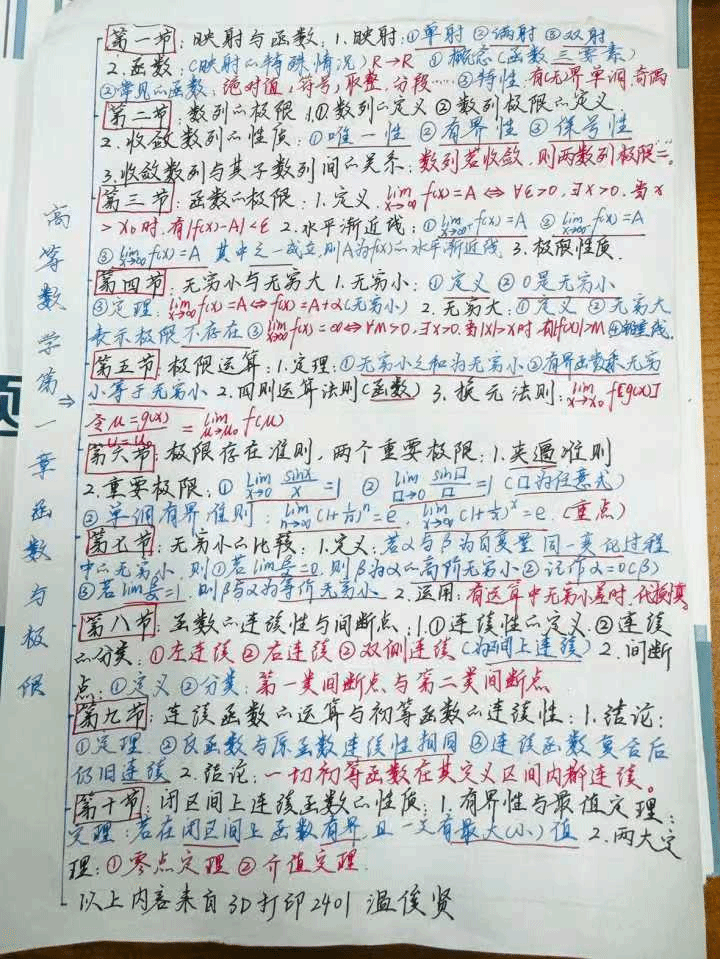 高等数学第一章函数与极限
第一节:映射与函数:1.映射:①单射 ②满射 ③双射
2.函数:(映射的特殊情况)R→R ①概念(函数三要素)
②常见的函数:绝对值,符号,取整,分段……③特性:有(无)界 单调,奇偶
第二节:数列的极限 1.①数列的定义 ②数列极限的定义
2.收敛数列的性质:①唯一性 ②有界性 ③保号性
3.收敛数列与其子数列间的关系:数列若收敛,则两数列极限
第三节:函数的极限:1.定义.lim x→∞ f(x)=A⇔∀ε>0,∃X>0,当x
>x₀时,有|f(x)-A|<ε 2.水平渐近线:①lim x→+∞ f(x)=A ②lim x→-∞ f(x)=A
③lim x→∞ f(x)=A 其中之一成立,则A为f(x)的水平渐近线 3.极限性质.
第四节:无穷小与无穷大 1.无穷小:①定义 ②0是无穷小
③定理:lim x→∞ f(x)=A⇔f(x)=A+α(无穷小) 2.无穷大:①定义 ②无穷大
表示极限不存在③lim x→∞ f(x)=∞⇔∀M>0,∃X>0.当|x|>X时,有|f(x)|>M ④
第五节:极限运算:1.定理:①无穷小之和为无穷小②有界函数乘无穷
小等于无穷小 2.四则运算法则(函数) 3.换元法则:lim x→x₀ f[g(x)]
令u=g(x) u=u₀ = lim u→u₀ f(u)
第六节:极限存在准则,两个重要极限:1.夹逼准则
2.重要极限:① lim x→0 sinx/x =1 ② lim □→0 sin□/□ =1(□为任意式)
②单调有界准则:lim n→∞ (1+1/n)ⁿ=e,lim x→∞ (1+1/x)ˣ=e.(重点)
第七节:无穷小的比较:1.定义:若α与β为自变量同一变化过程
中的无穷小.则①若lim =0.则β为α的高阶无穷小②记作α=o(β)
③若lim =1.则β与α为等价无穷小 2.运用:有运算中无穷小差时.
第八节:函数的连续性与间断点:1.①连续性的定义.②连续
的分类:①左连续②右连续③双侧连续(为闭上连续) 2.间断
点:①定义 ②分类:第一类间断点与第二类间断点
第九节:连续函数的运算与初等函数的连续性:1.结论:
①定理.②反函数与原函数连续性相同③连续函数复合后
仍旧连续 2.结论:一切初等函数在其定义区间内都连续。
第十节:闭区间上连续函数的性质:1.有界性与最值定理:
定理:若在闭区间上函数有界且一定有最大(小)值 2.两大定
理:①零点定理②介值定理
以上内容来自3D打印2401 温俊贤